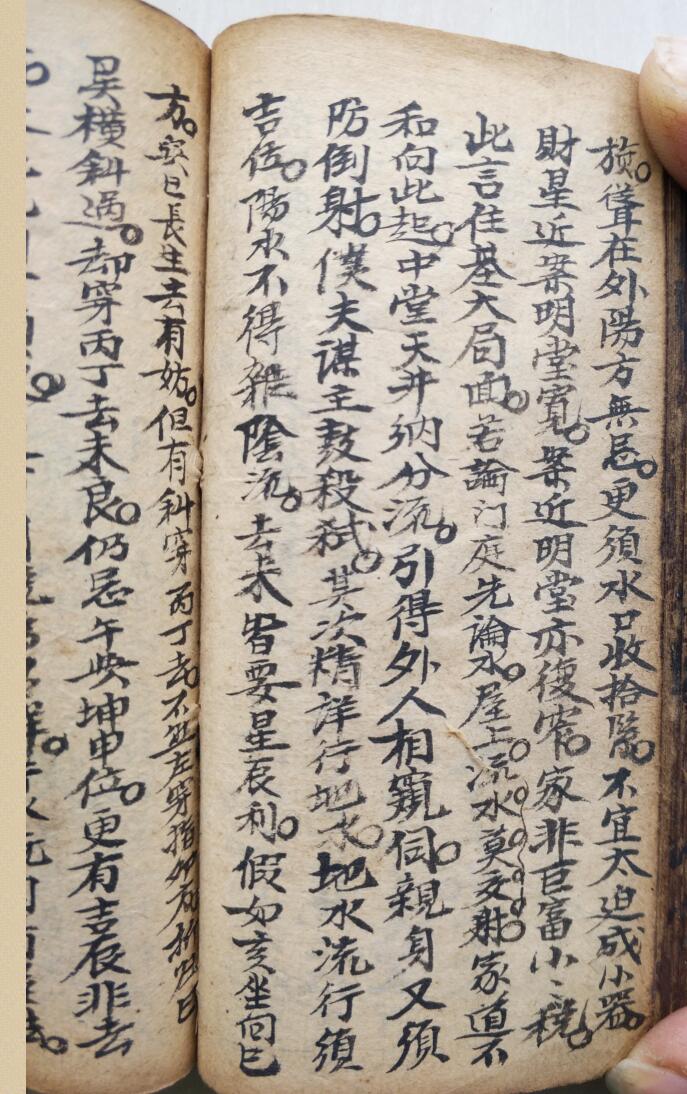 旋聳在外陽方無忌更須水口收拾隘不宜太迫成小器
財星近案明堂寬案近明堂亦復窄家非巨富小小稅
此言住基大局面若論门庭先論水屋上流水莫交射家道不
和向此起中堂天井纳分流引得外人相窺伺親身又須
防倒射僕夫謀主敖殺弒其次精详行地水地水流行須
吉位陽水不得雜陰流去来皆要星辰利假如亥坐向巳
方巽巳長生去有妨但有斜穿丙丁去不宜左穿指
昊横斜過却穿丙丁去未良仍忌午央坤申位更有吉辰非去